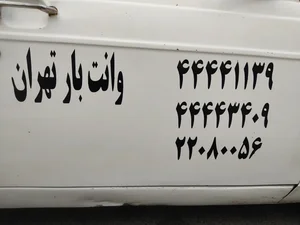 وانت بار تهران
۴۴۴۴۱۱۳۹
۴۴۴۴۳۴۰۹
۲۲۰۸۰۰۵۶